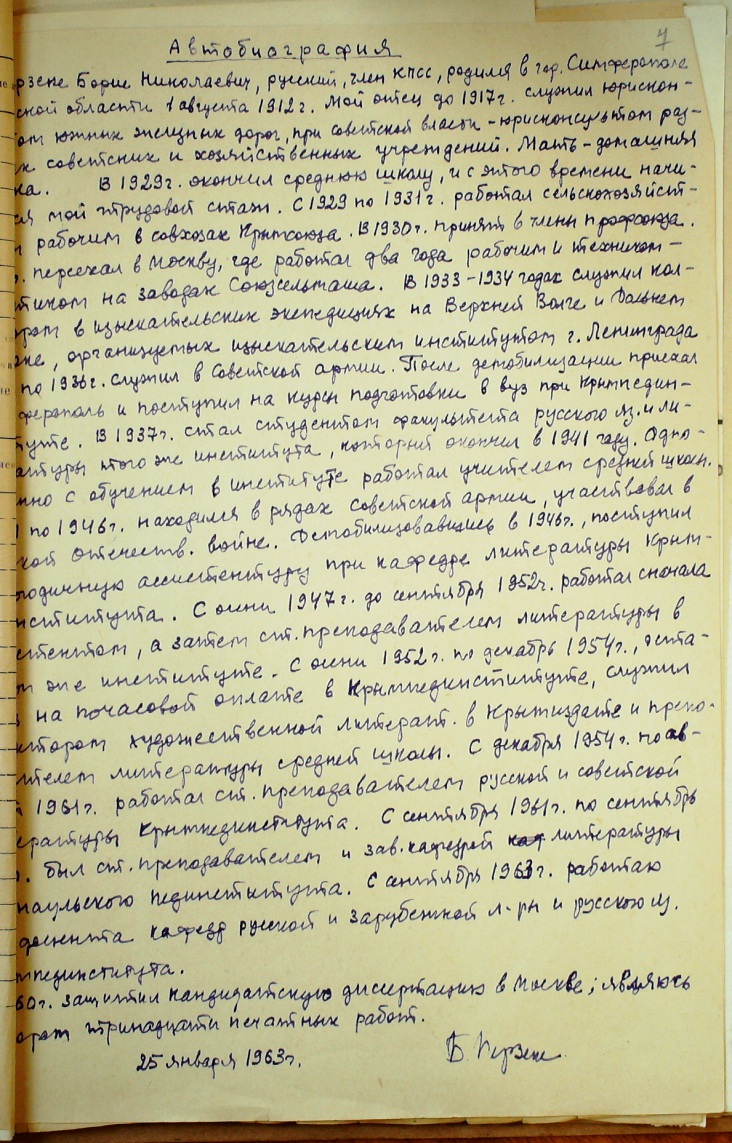 7
Автобиография
рзене Борис Николаевич, русский, член КПСС, родился в гор. Симферополе
ской области 1 августа 1912 г. Мой отец до 1917 г. служил юрискон-
том южных железных дорог, при советской власти – юрисконсультом раз-
х советских и хозяйственных учреждений. Мать – домашняя
ка. В 1929 г. окончил среднюю школу, и с этого времени начи-
ся мой трудовой стаж. С 1929 по 1931 г. работал сельскохозяйст-
м рабочим в совхозах Крымсоюза. В 1930 г. принят в члены профсоюза.
. переехал в Москву, где работал два года рабочим и техником –
тиком на заводах Союзсельмаша. В 1933–1934 годах служил кол-
ором в изыскательских экспедициях на Верхней Волге и Дальнем
ке, организуемых изыскательским институтом г. Ленинграда
по 1936 г. служил в Советской армии. После демобилизации приехал
ферополь и поступил на курсы подготовки в вуз при Крымпедин-
туте. В 1937 г. стал студентом факультета русского яз. и ли-
атуры этого же института, который окончил в 1941 году. Одно-
нно с обучением в институте работал учителем средней школы.
1 по 1946 г. находился в рядах Советской армии, участвовал в
кой Отечеств. войне. Демобилизовавшись в 1946 г., поступил
годичную ассистентуру при кафедре литературы Крым-
нститута. С осени 1947 г. до сентября 1952 г. работал сначала
стентом, а затем ст. преподавателем литературы в
м же институте. С осени 1952 г. по декабрь 1954 г., оста-
на почасовой оплате в Крымпединституте, служил
ктором художественной литерат. в Крымиздате и препо-
ателем литературы средней школы. С декабря 1954 г. по ав-
1961 г. работал ст. преподавателем русской и советской
ературы Крымпединститута. С сентября 1961 г. по сентябрь
. был ст. преподавателем и зав. кафедрой литературы
наульского пединститута. С сентября 1963 г. работаю
доцента кафедр русской и зарубежной л-ры и русского яз.
мпединститута.
60 г. защитил кандидатскую диссертацию в Москве; являюсь
ором тринадцати печатных работ.
25 января 1963 г. Б. Керзене